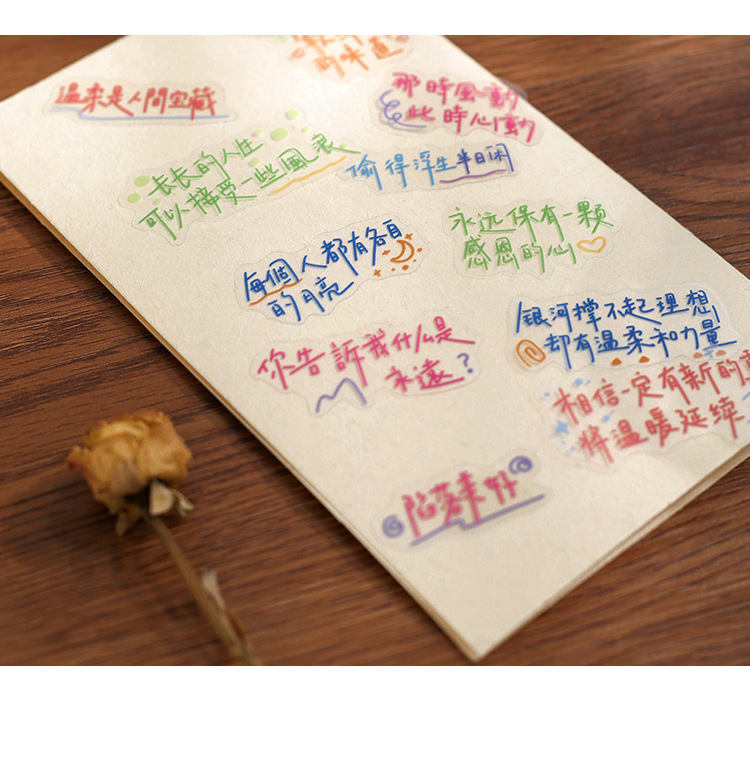 的味道
温柔是人間宝藏
那時風動
此時心動
長長的人生
可以接受一些風浪
偷得浮生半日闲
永远保有一颗
感恩的心
每個人都有各自
的月亮
銀河撑不起理想
却有温柔和力量
你告訴我什么是
永遠?
相信一定有新的
將温暖延续
陷落美好